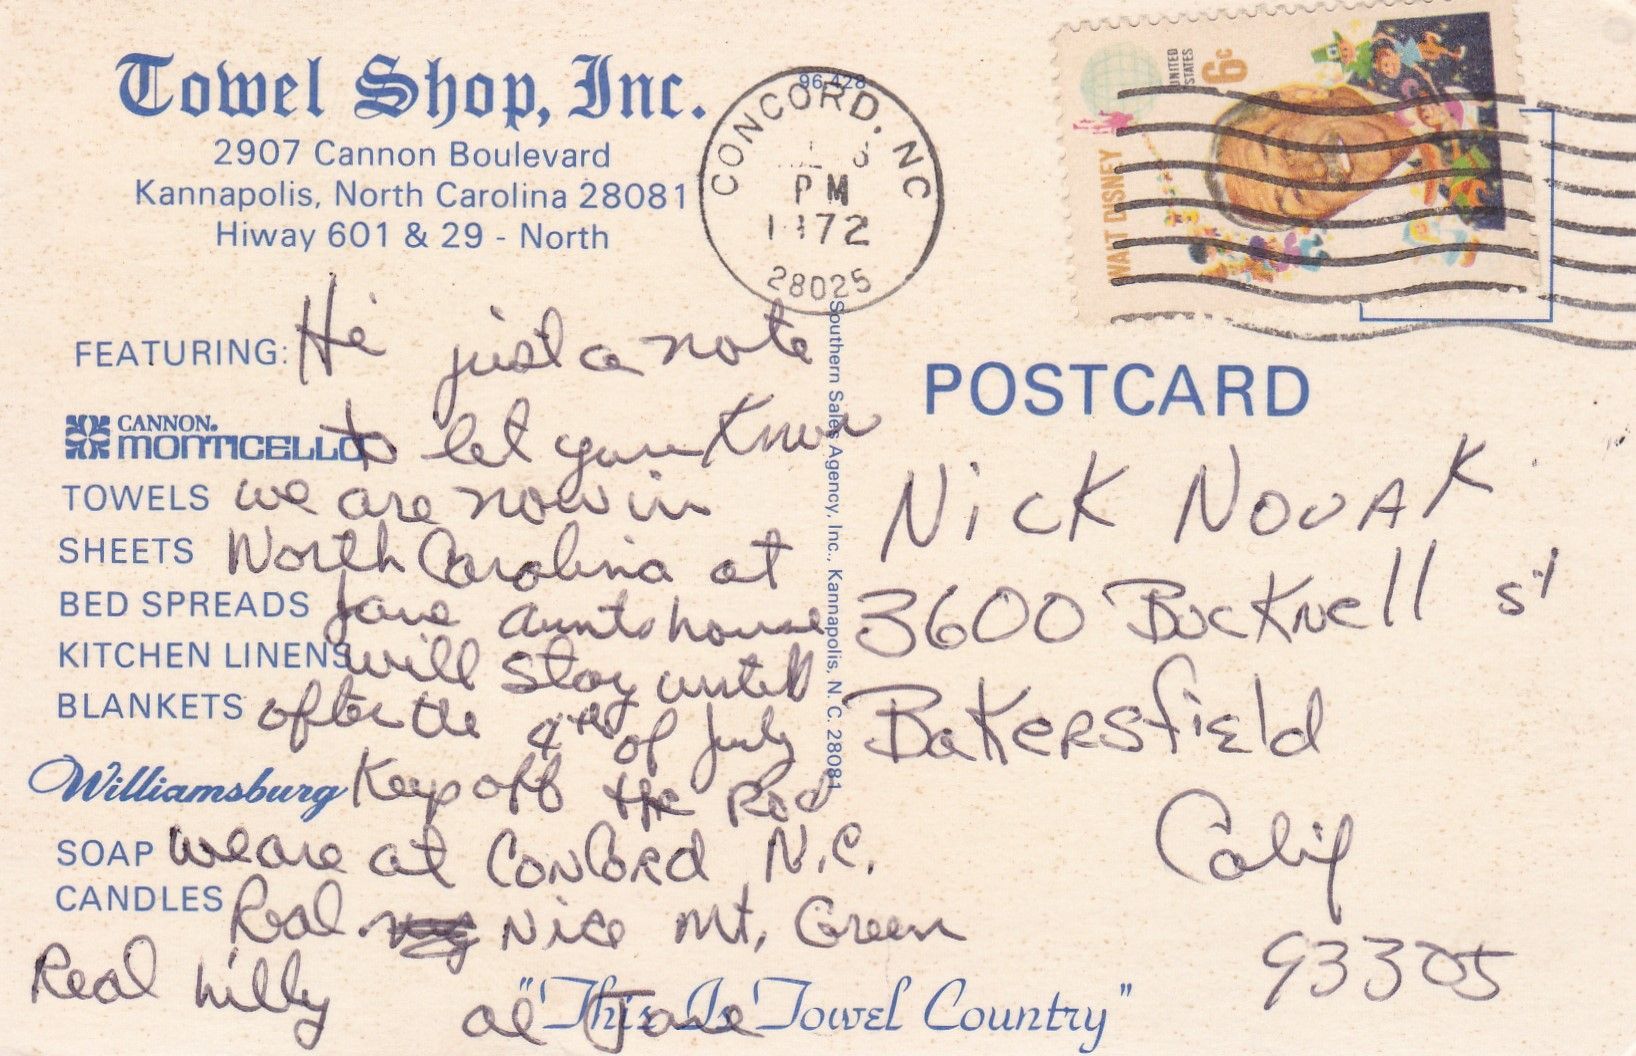 Towel Shop, Inc.
2907 Cannon Boulevard
Kannapolis, North Carolina 28081
Hiway 601 & 29 - North
96,428
CONCORD, NC
PM
1972
28025
UNITED STATES
6c
WALT DISNEY
FEATURING:
CANNON.
MONTICELLO
TOWELS
SHEETS
BED SPREADS
KITCHEN LINENS
BLANKETS
Williamsburg
SOAP
CANDLES
Hi just a note
to let you know
we are now in
North Carolina at
Jane aunts house
will stay until
after the 4th of July
Keep off the Rod
we are at Concord N.C.
Real Nice Mt. Green
Real hilly
al Jane
"This Is Towel Country"
Southern Sales Agency, Inc., Kannapolis, N. C. 28081
POSTCARD
Nick Novak
3600 Bucknell st
Bakersfield
Calif
93305